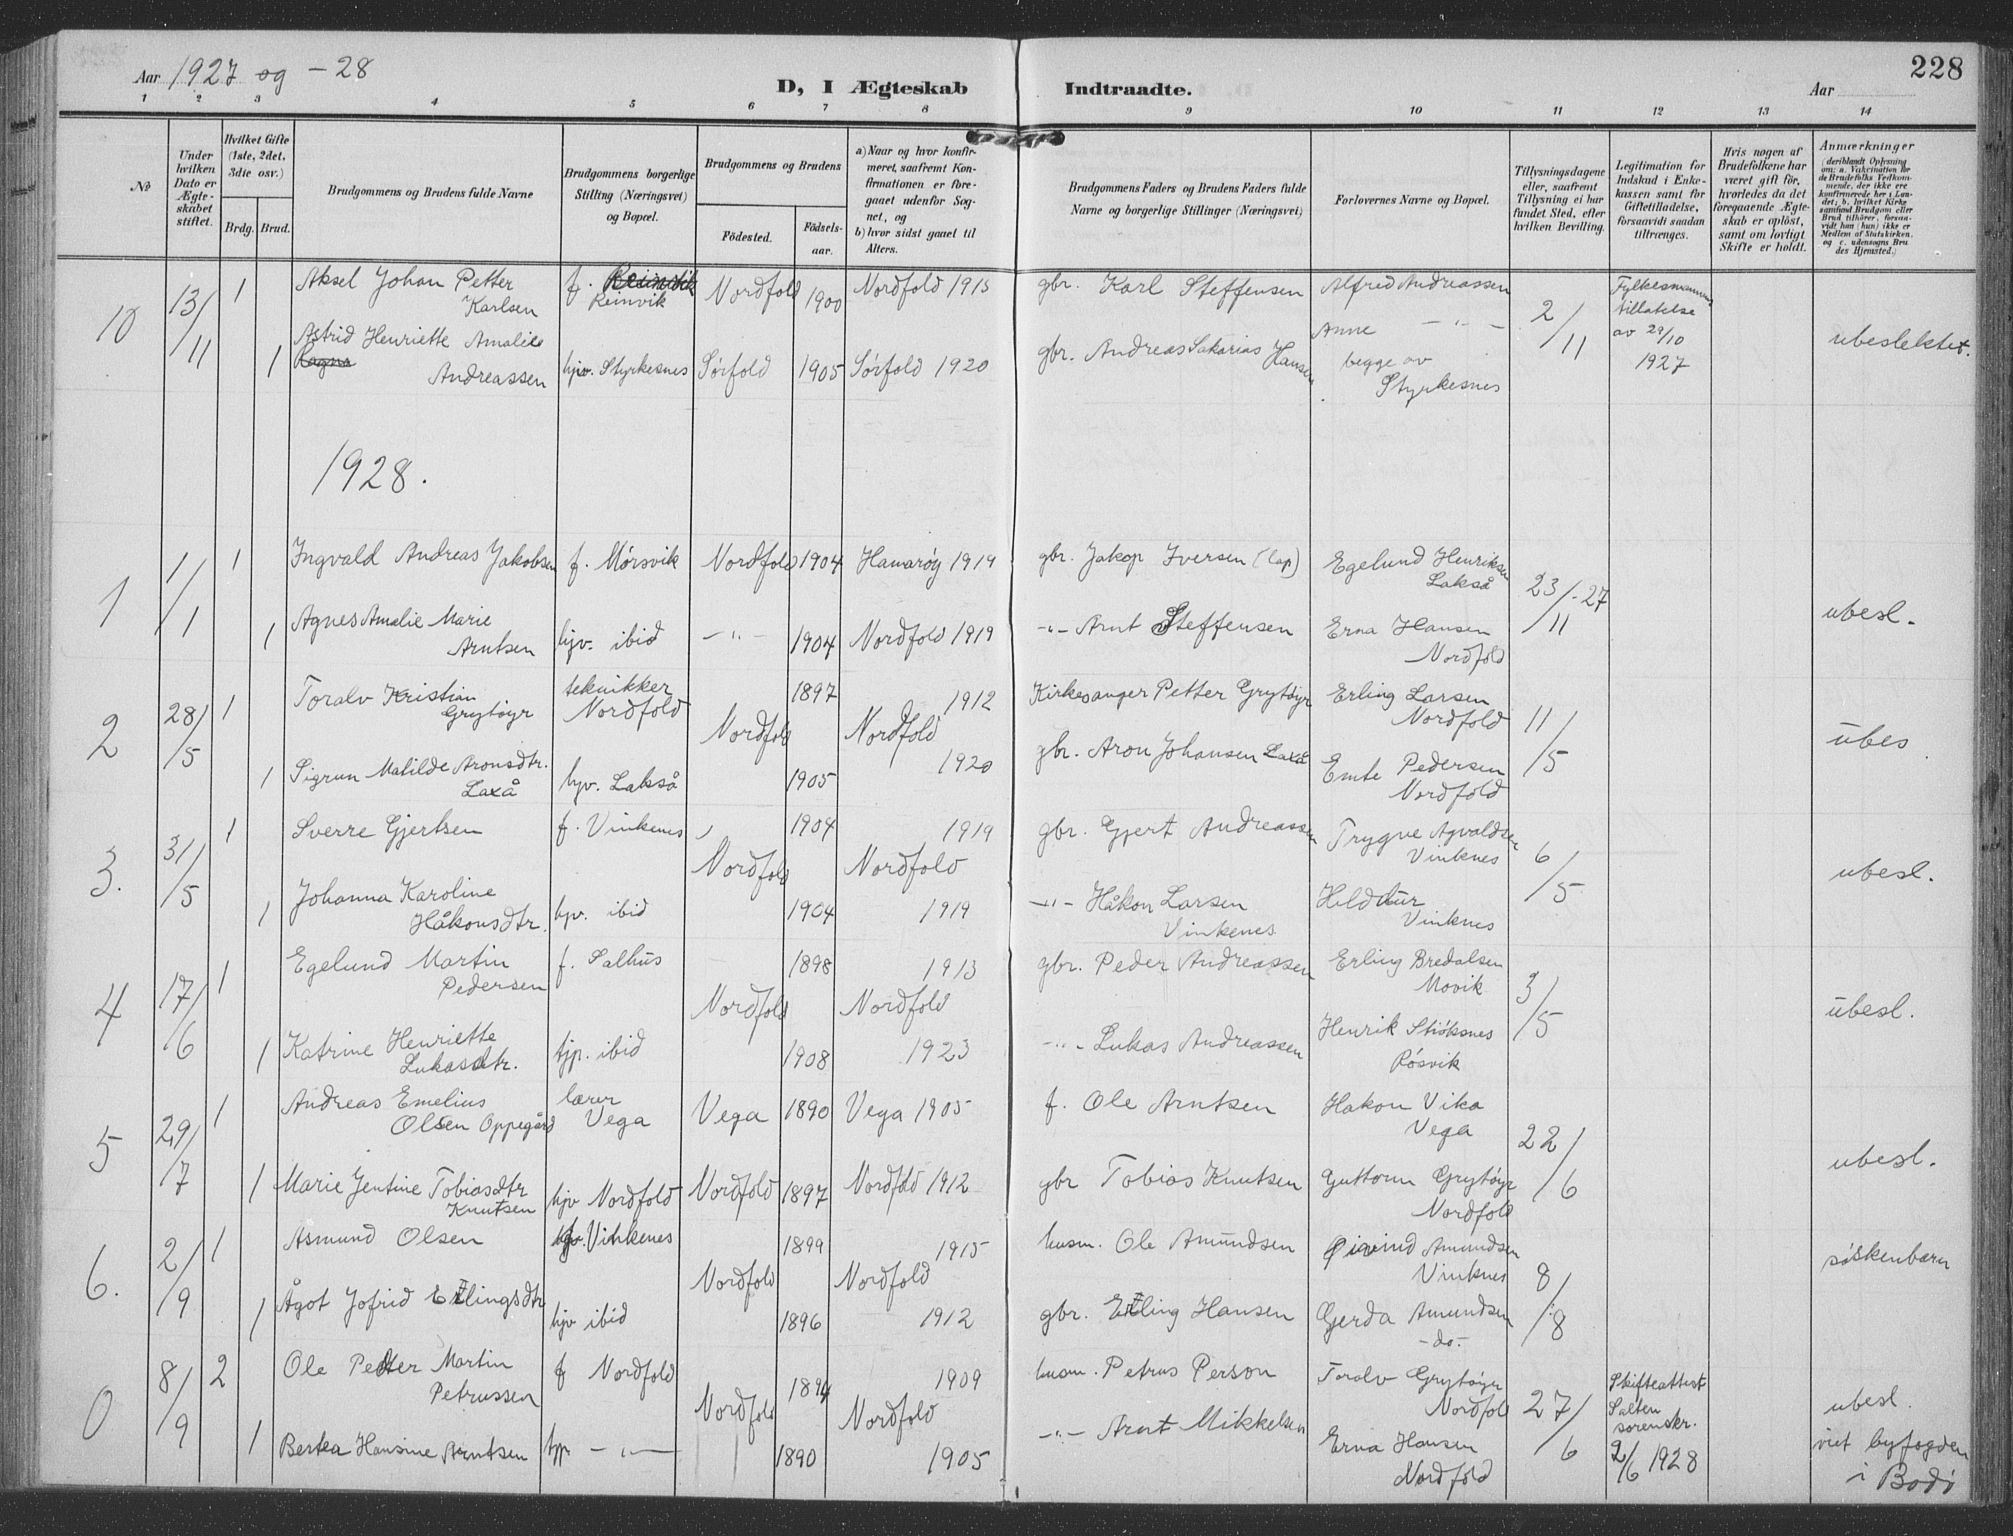 Aar 1927 og -28
D, I Ægteskab
Indtraadte.
Aar
228
1 2 3 4 5 6 7 8 9 10 11 12 13 14
No
Under hvilken Dato er Ægteskabet stiftet.
Hvilket Gifte (1ste, 2det, 3die osv.)
Brdg. Brud.
Brudgommens og Brudens fulde Navne
Brudgommens borgerlige Stilling (Næringsvei) og Bopæl.
Brudgommens og Brudens
Födested.
Födselsaar.
a) Naar og hvor konfirmeret, saafremt Konfirmationen er foregaaet udenfor Sognet, og
b) hvor sidst gaaet til Alters.
Brudgommens Faders og Brudens Faders fulde Navne og borgerlige Stillinger (Næringsvei)
Forlovernes Navne og Bopæl.
Tillysningsdagene eller, saafremt Tillysning ei har fundet Sted, efter hvilken Bevilling.
Legitimation for Indskud i Enkekassen samt for Giftetilladelse, forsaavidt saadan tiltrænges.
Hvis nogen af Brudefolkene har været gift för, hvorledes da det foregaaende Ægteskab er oplöst, samt om lovligt Skifte er holdt.
Anmærkninger
(deriblandt Oplysning om: a. Vakcination for de Brudefolks Vedkommende, der ikke ere konfirmerede her i Landet; b. hvilket Kirkesamfund Brudgom eller Brud tilhörer, forsaavidt han (hun) ikke er Medlem af Statskirken, og c. udensogns Brudes Hjemsted.)
10 13/11 1 Aksel Johan Petter Karlsen f. Reinvik Nordfold 1900 Nordfold 1915 gbr. Karl Steffensen Alfred Andreassen 2/11 Fylkesmannens tillatelse av 29/10 1927 ubeslektet.
1 Astrid Henriette Amalie Ragna Andreassen hjv. Styrkesnes Sørfold 1905 Sørfold 1920 gbr. Andreas Sakarias Hansen Anne -"- begge av Styrkesnes
1928.
1 1/1 1 Ingvald Andreas Jakobsen f. Mørsvik Nordfold 1904 Hamarøy 1919 gbr. Jakop Iversen (lap) Egelund Henriksen Lakså 23/11-27 ubesl.
1 Agnes Amalie Marie Arntsen hjv. ibid -"- 1904 Nordfold 1919 -"- Arnt Steffensen Erna Hansen Nordfold
2 28/5 1 Toralv Kristian Grytøyr teknikker Nordfold Nordfold 1897 Nordfold 1912 Kirkesanger Petter Grytøyr Erling Larsen Nordfold 11/5 ubes
1 Sigrun Matilde Aronsdtr. Laxå hjv. Lakså 1905 1920 gbr. Aron Johansen Laxå Emte Pedersen Nordfold
3. 31/5 1 Sverre Gjertsen f. Vinkenes Nordfold 1904 Nordfold 1919 gbr. Gjert Andreassen Trygve Agvaldsen Vinknes 6/5 ubesl.
1 Johanna Karoline Håkonsdtr. hjv. ibid 1904 1919 -"- Håkon Larsen Vinkenes Hildur Vinknes
4 17/6 1 Egelund Martin Pedersen f. Salhus Nordfold 1898 Nordfold 1913 gbr. Peder Andreassen Erling Bredalsen Movik 3/5 ubesl.
1 Katrine Henriette Lukasdtr. tjp. ibid 1908 1923 -"- Lukas Andreassen Henrik Støksnes Røsvik
5 29/7 1 Andreas Emelius Olsen Oppegård lærer Vega Vega 1890 Vega 1905 f. Ole Arntsen Hakon Vika Vega 22/6 ubesl.
1 Marie Jentine Tobiasdtr Knutsen hjv Nordfold Nordfold 1897 Nordfold 1912 gbr Tobias Knutsen Guttorm Grytøyr Nordfold
6. 2/9 1 Asmund Olsen f. Vinkenes Nordfold 1899 Nordfold 1915 husm. Ole Amundsen Øivind Amundsen Vinknes 8/8 søskenbarn
1 Ågot Jofrid Etlingsdtr hjv ibid 1896 1912 gbr. Etling Hansen Gerda Amundsen -do-
0 8/9 2 Ole Petter Martin Petrussen f Nordfold Nordfold 1894 Nordfold 1909 husm. Petrus Person Toralv Grytøyr Nordfold 27/6 Skifteattest Salten sorenskr. 2/6 1928 ubesl. viet byfogden i Bodø
1 Bertea Hansine Arntsen tjp -"- 1890 1905 -"- Arnt Mikkelsen Erna Hansen Nordfold